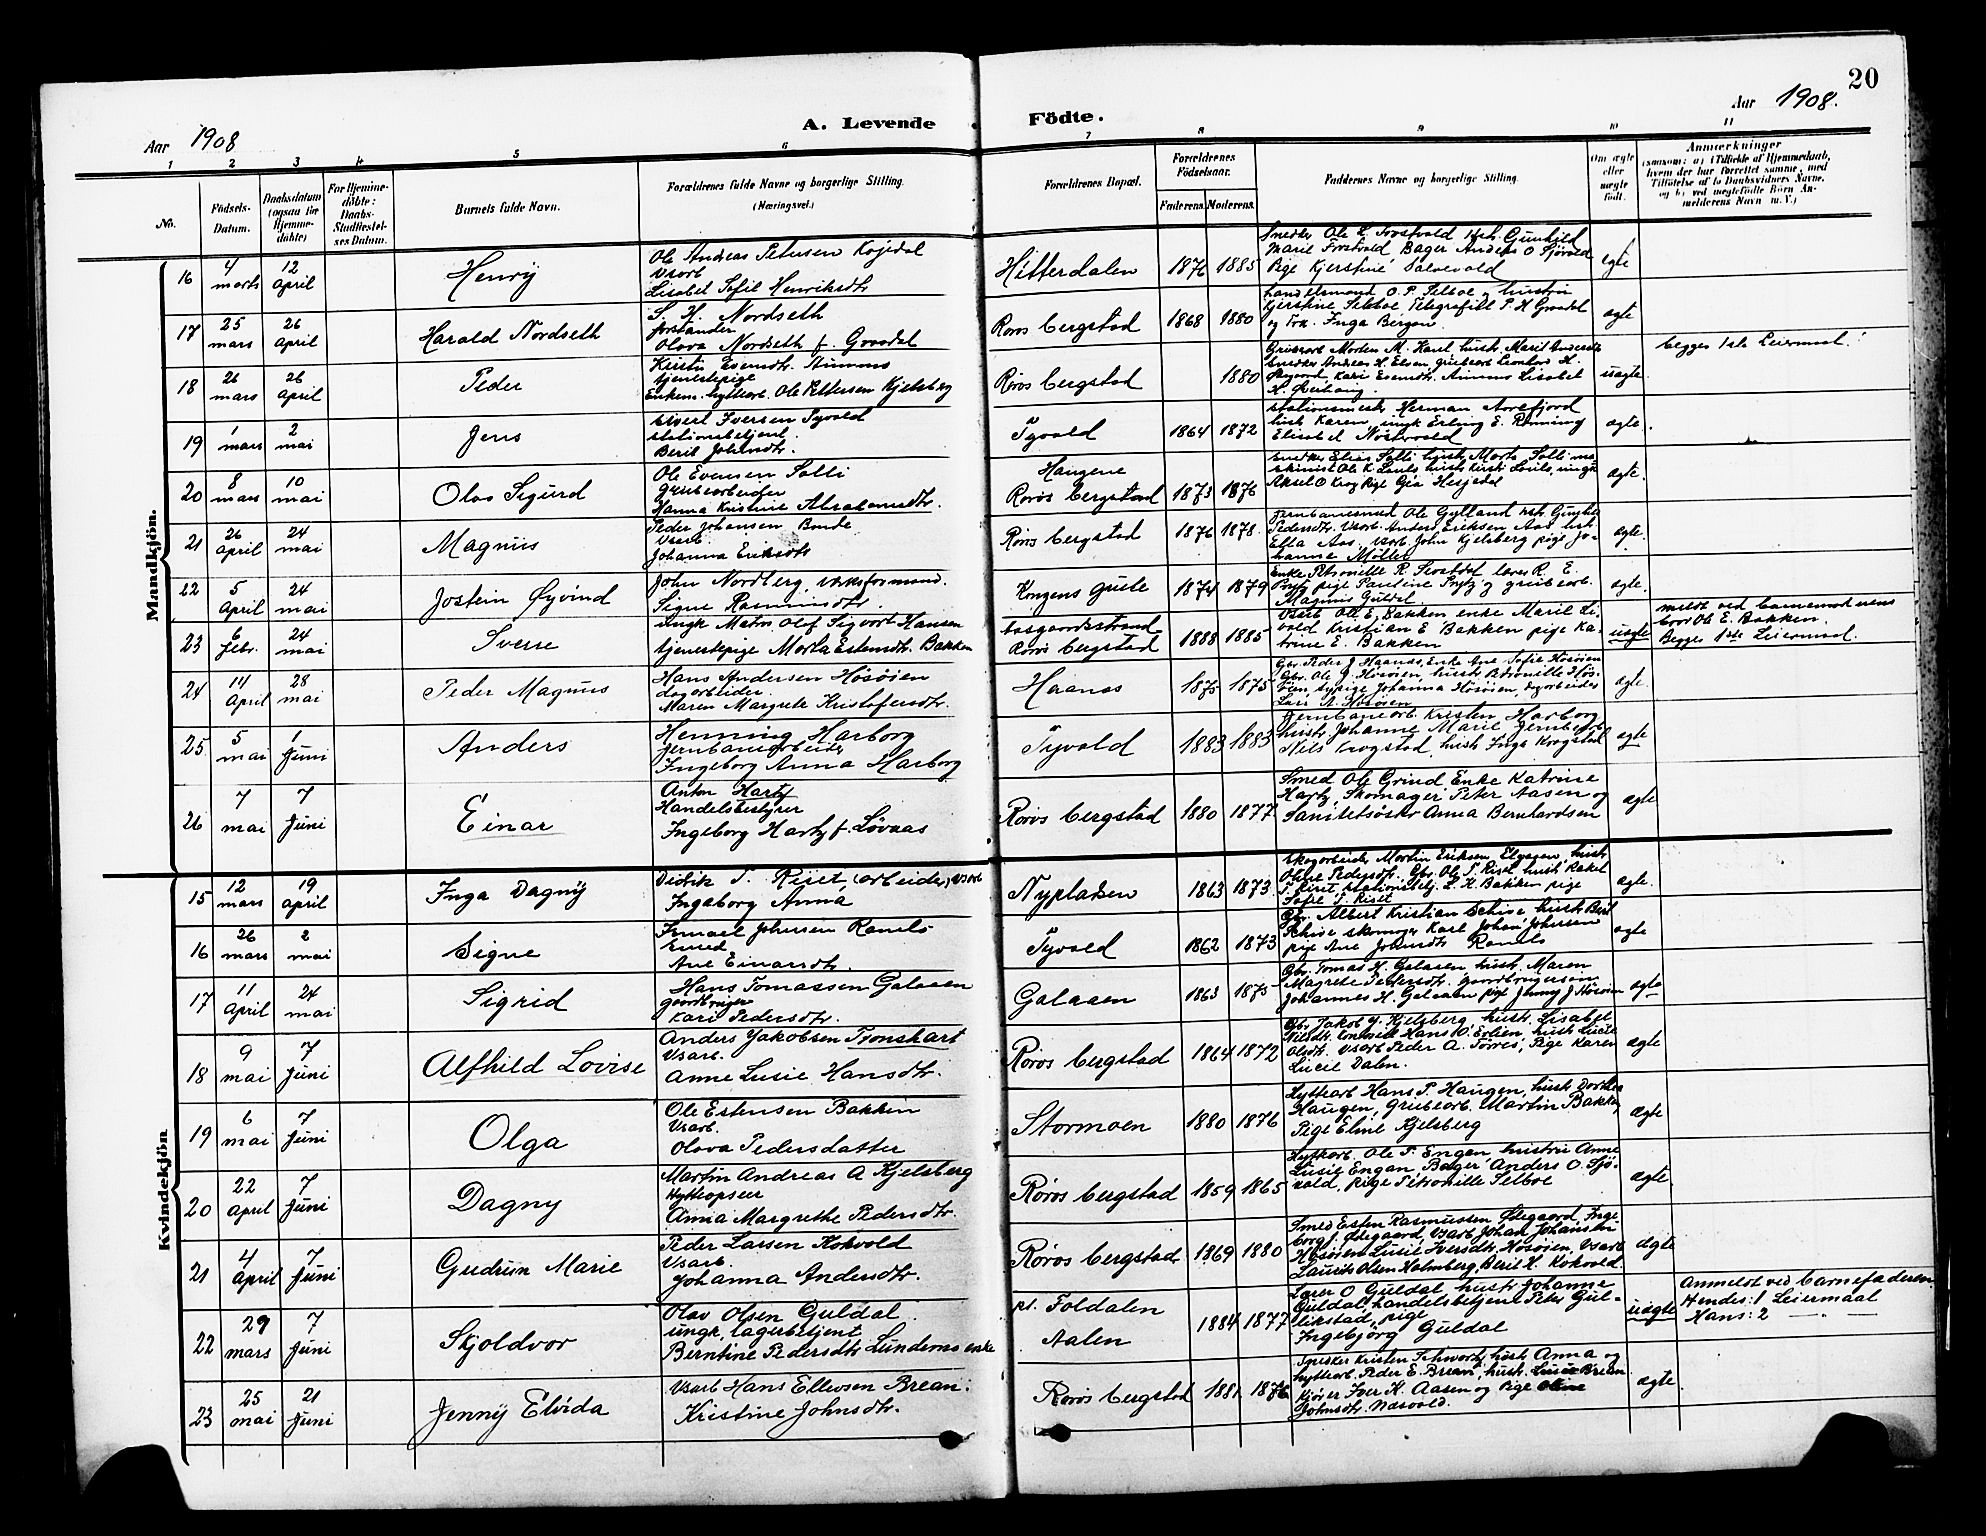 20
Aar 1908
A. Levende Födte.
Aar 1908.
1 2 3 4 5 6 7 8 9 10 11
No.
Födsels-
Datum.
Daabsdatum
(ogsaa for
Hjemme-
döbte)
For Hjemme-
döbte:
Daabs-
Stadfæstel-
ses Datum.
Barnets fulde Navn.
Forældrenes fulde Navne og borgerlige Stilling.
(Næringsvei.)
Forældrenes Bopæl.
Forældrenes
Födselsaar.
Faderens. Moderens.
Faddernes Navne og borgerlige Stilling.
Om ægte
eller
uægte
født.
Anmærkninger
(saasom: a) i Tilfælde af Hjemmedaab,
hvem der har forrettet samme, med
Tilföielse af to Daabsvidners Navne,
og b) ved uægtefödte Börn An-
melderens Navn m. V.)
Mandkjön.
16 4 marts 12 April Henrÿ
Ole Andreas Petersen Kojedal
Vsarb
Lisabet Sofie Henriksdtr
Hitterdalen 1876 1885
Marie Frostvold Bager Anders O Sjövold
Pige Kjerstine Salvevold
ægte
17 25 mars 26 April Harald Nordseth
S. H. Nordseth
forstander
Olava Nordseth f. Graadal
Røros bergstad 1868 1880
Handelsmand O. P. Selboe, hustru
Kjerstine Selboe Telegrafist P. H Graadal
og Frk. Inga Bergan.
ægte
18 26 mars 26 April Peder
Kirsti Evensdtr.
tjenestepige
Enkem. hyttearb. Ole Pettersen Kjelsberg
Røros bergstad 1880
uægte.
begges 1ste Leiermaal.
19 1 mars 2 mai Jens
Sivert Iversen Tyvold
stationsbetjent.
Beril Johnsdtr.
Tyvold 1864 1872
stationsmester Herman Aarefjord
hust Karen, ungk Erling E. Rønning
Elisabet Nöstvold
ægte.
20 8 mars 10 mai Olav Sigurd
Ole Evensen Solli
Grubearbeider
Hanna Kristine Abrahamsdtr.
Haugene
Røros bergstad 1873 1876
Snedker Elias Solli hust. Marta Solli ma-
skinist Ole K. hust Kirsti
Aksel O Krog Pige Gea Hesjedal
ægte.
21 26 April 24 mai Magnus
Peder Johansen Bonde
Vsarb.
Johanna Eriksdtr
Røros bergstad 1876 1878.
Jernbanemand Ole Gylland hst
Pedersdtr. Vsarb. Anders Eriksen Aas hst
Ella Aas. Vsarb. John Kjelsberg pige Jo-
hanne Möller
ægte.
22 5 April 24 mai Jostein Øyvind
John Nordberg, værksformand.
Signe Rasmusdtr.
Kongens Grube 1874 1879
Enke Petronelle R. lærer R. E.
Prytz pige Pauline Prytz og grubearb.
Magnus Guldal
ægte.
23 6 febr. 24 mai Sverre
ungk Matros Olof Sigvart Hansen
tjenestepige Marta Estensdtr. Bakken
Aasgaardsstrand
Røros bergstad 1888 1885
Vsarb Ole E. Bakken enke Marie Li-
vold Kristian E Bakken pige Ka-
trine E. Bakken
uægte
meldt ved barnemoderens
bror Ole E. Bakken.
Begges 1ste Leiermaal.
24 14 April 28 mai Peder Magnus
Hans Andersen Hösöien
dagarbeider.
Maren Margrete Kristofersdtr.
Haanos 1875 1875
Gbr. Peder J Haanaas, Enke Ane Sofie Hösöien
Gbr. Ole J. Hösöien, hust Petronille Hös-
öien, pige Johanna Hösöien, dagarbeider
Lars A. Hösöien
ægte.
25 5 mai 1 Juni Anders
Henning Harborg
Jernbanearbeider
Ingeborg Anna Harborg
Tyvold 1883 1883
Jernbanearb. Kristen Harborg
hust. Johanne Marie
Nils Krogstad, hust Inga Krogstad
ægte
26 7 mai 7 Juni Einar
Anton Hartz
Handelsbestyrer
Ingeborg Hartz f. Løvaas
Røros bergstad 1880 1877
Smed Ole Grind Enke Katrine
Hartz, Skomager Peter Aasen og
Sanitetsöster Anna Bernhardsen
ægte
Kvindekjön
15 12 mars 19 April Inga Dagnÿ
Didrik T. Riset, (arbeider) Vsarb
Ingeborg Anna
Nyplassen 1863 1873
Skogarbeider Martin Eriksen Elgaaen, hustr
Oline Pedersdtr, Gbr. Ole T. Riset hust Rakel
T. Riset, stationsbetj. E. H. Bakken pige
Sofie T. Riset
ægte.
16 26 mars 2 mai Signe
Ismael Johnsen Ramlo
Smed
Ane Einarsdtr.
Tyvold 1862 1873
Gbr. Albert Kristian Schive, hust Berit
Schive skomager Karl Johan Johnsen
pige Ane Johnsdtr Ramlo
ægte
17 11 April 24 mai Sigrid
Hans Tomassen Galaaen
gaardbruger
Kari Pedersdtr.
Galaaen 1863 1875
Gbr. Tomas H. Galaaen hust. Maren
Magrete Pedersdtr. gaardbrugersön
Johannes H. Galaaen pige Jenny J Hösöien
ægte
18 9 mai 7 Juni Alfhild Lovise
Anders Jakobsen Trønshart
Vsarb.
Anne Lusie Hansdtr.
Røros bergstad 1864 1872
Gbr Jakob J. Kjelsberg, hustr. Lisabet
Nilsdtr. Hans O. Evlien, hust Lucie
Olsdtr. Vsarb Peder A. Torres, Pige Karen
Lucie Dalen.
ægte
19 6 mai 7 Juni Olga
Ole Estensen Bakken
Vsarb.
Olava Pedersdatter
Stormoen 1880 1876
Hyttearb Hans P. Haugen, hust Dorthea
Haugen, Grubearb. Martin Bakken,
Pige Eline Kjelsberg
ægte
20 22 April 7 Juni Dagny
Martin Andreas A Kjelsberg
Hytteopseer
Anna Margrethe Pedersdtr.
Røros bergstad 1859 1865
Hyttearb. Ole P. Engen, hustru Anne
Lusie Engan, Bager Anders O. Sjö-
vold, Pige Petronille Selboe
ægte
21 4 April 7 Juni Gudrun Marie
Peder Larsen Kokvold
Vsarb.
Johanna Andersdtr.
Røros bergstad 1869 1880
Smed Esten Rasmussen Ødegaard, Inge-
borg J. Ødegaard, Vsarb Johan Johansen
Hösöien Lusie Iversdtr. Hösöien, Vsarb
Laurits Olsen Holmberg, Beril H. Kokvold.
ægte
22 29 mars 7 Juni Skjoldvor
Olav Olsen Guldal.
ungk, lagerbetjent
Berntine Pedersdtr Lundemo enke
pt. Foldalen
Aalen 1884 1877
Lærer O Guldal hustr Johanne
Guldal, handelsbetjent Peter Gul-
likstad, pige
Ingebjörg Guldal
uægte
Anmeldt ved barnefaderen
Hendes: 1 Leiermaal
Hans: 2 —"—
23 25 mai 21 Juni Jennÿ Elvida
Vsarb Hans Ellevsen Brean.
Kristine Johnsdtr.
Røros bergstad 1881 1876
Snedker Kristen Schwartz, hust Anna og
hyttearb. Peder E. Brean, hust. Lusie Brean
Kjører Iver H. Aasen og Pige Oline
Johnsdtr. Næsvold.
ægte.